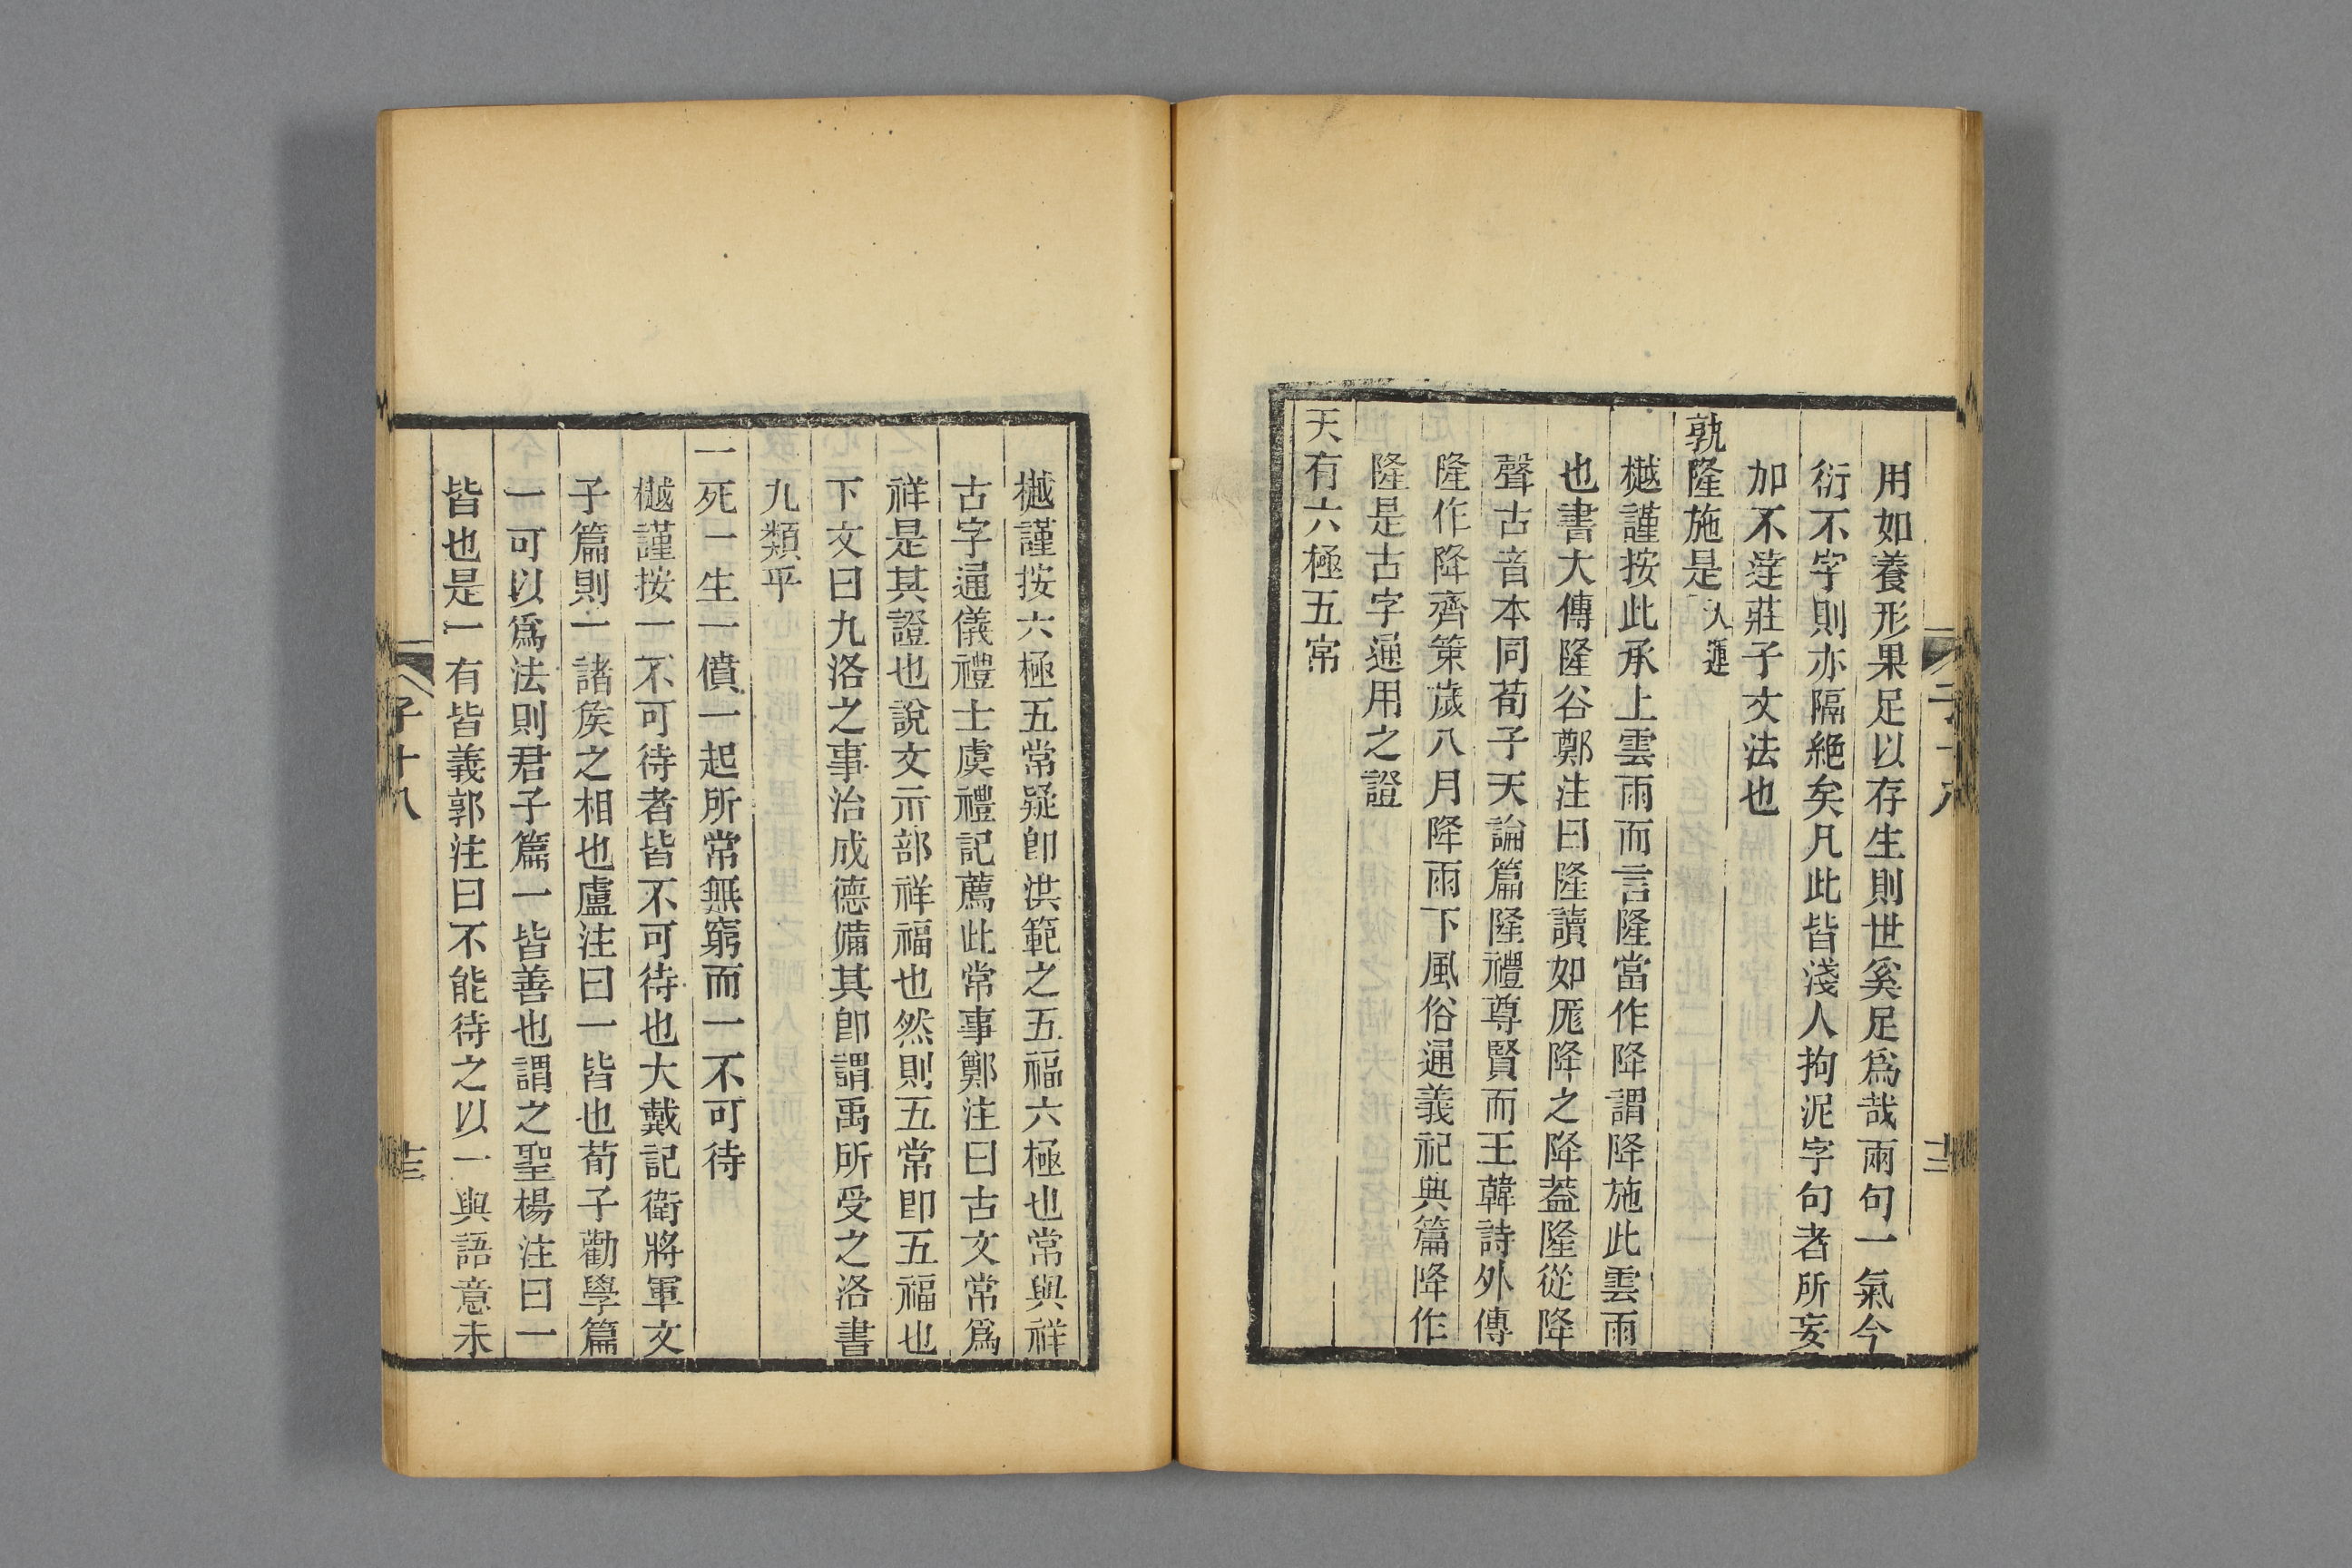 用如養形果足以存生則世奚足爲哉兩句一氣今
衍不字則亦隔絶矣凡此皆淺人拘泥字句者所妄
加不達莊子文法也
孰隆施是 天運
樾謹按此承上雲雨而言隆當作降謂降施此雲雨
也書大傳隆谷鄭注曰隆讀如厖降之降蓋隆從降
聲古音本同荀子天論篇隆禮尊賢而王韓詩外傳
隆作降齊策歲八月降雨下風俗通義祀典篇降作
隆是古字通用之證
天有六極五常
樾謹按六極五常疑卽洪範之五福六極也常與祥
古字通儀禮士虞禮記薦此常事鄭注曰古文常爲
祥是其證也說文示部祥福也然則五常卽五福也
下文曰九洛之事治成德備其卽謂禹所受之洛書
九類乎
一死一生一僨一起所常無窮而一不可待
樾謹按一不可待者皆不可待也大戴記衛將軍文
子篇則一諸矦之相也盧注曰一皆也荀子勸學篇
一可以爲法則君子篇一皆善也謂之聖楊注曰一
皆也是一有皆義郭注曰不能待之以一與語意未
子十八
十三